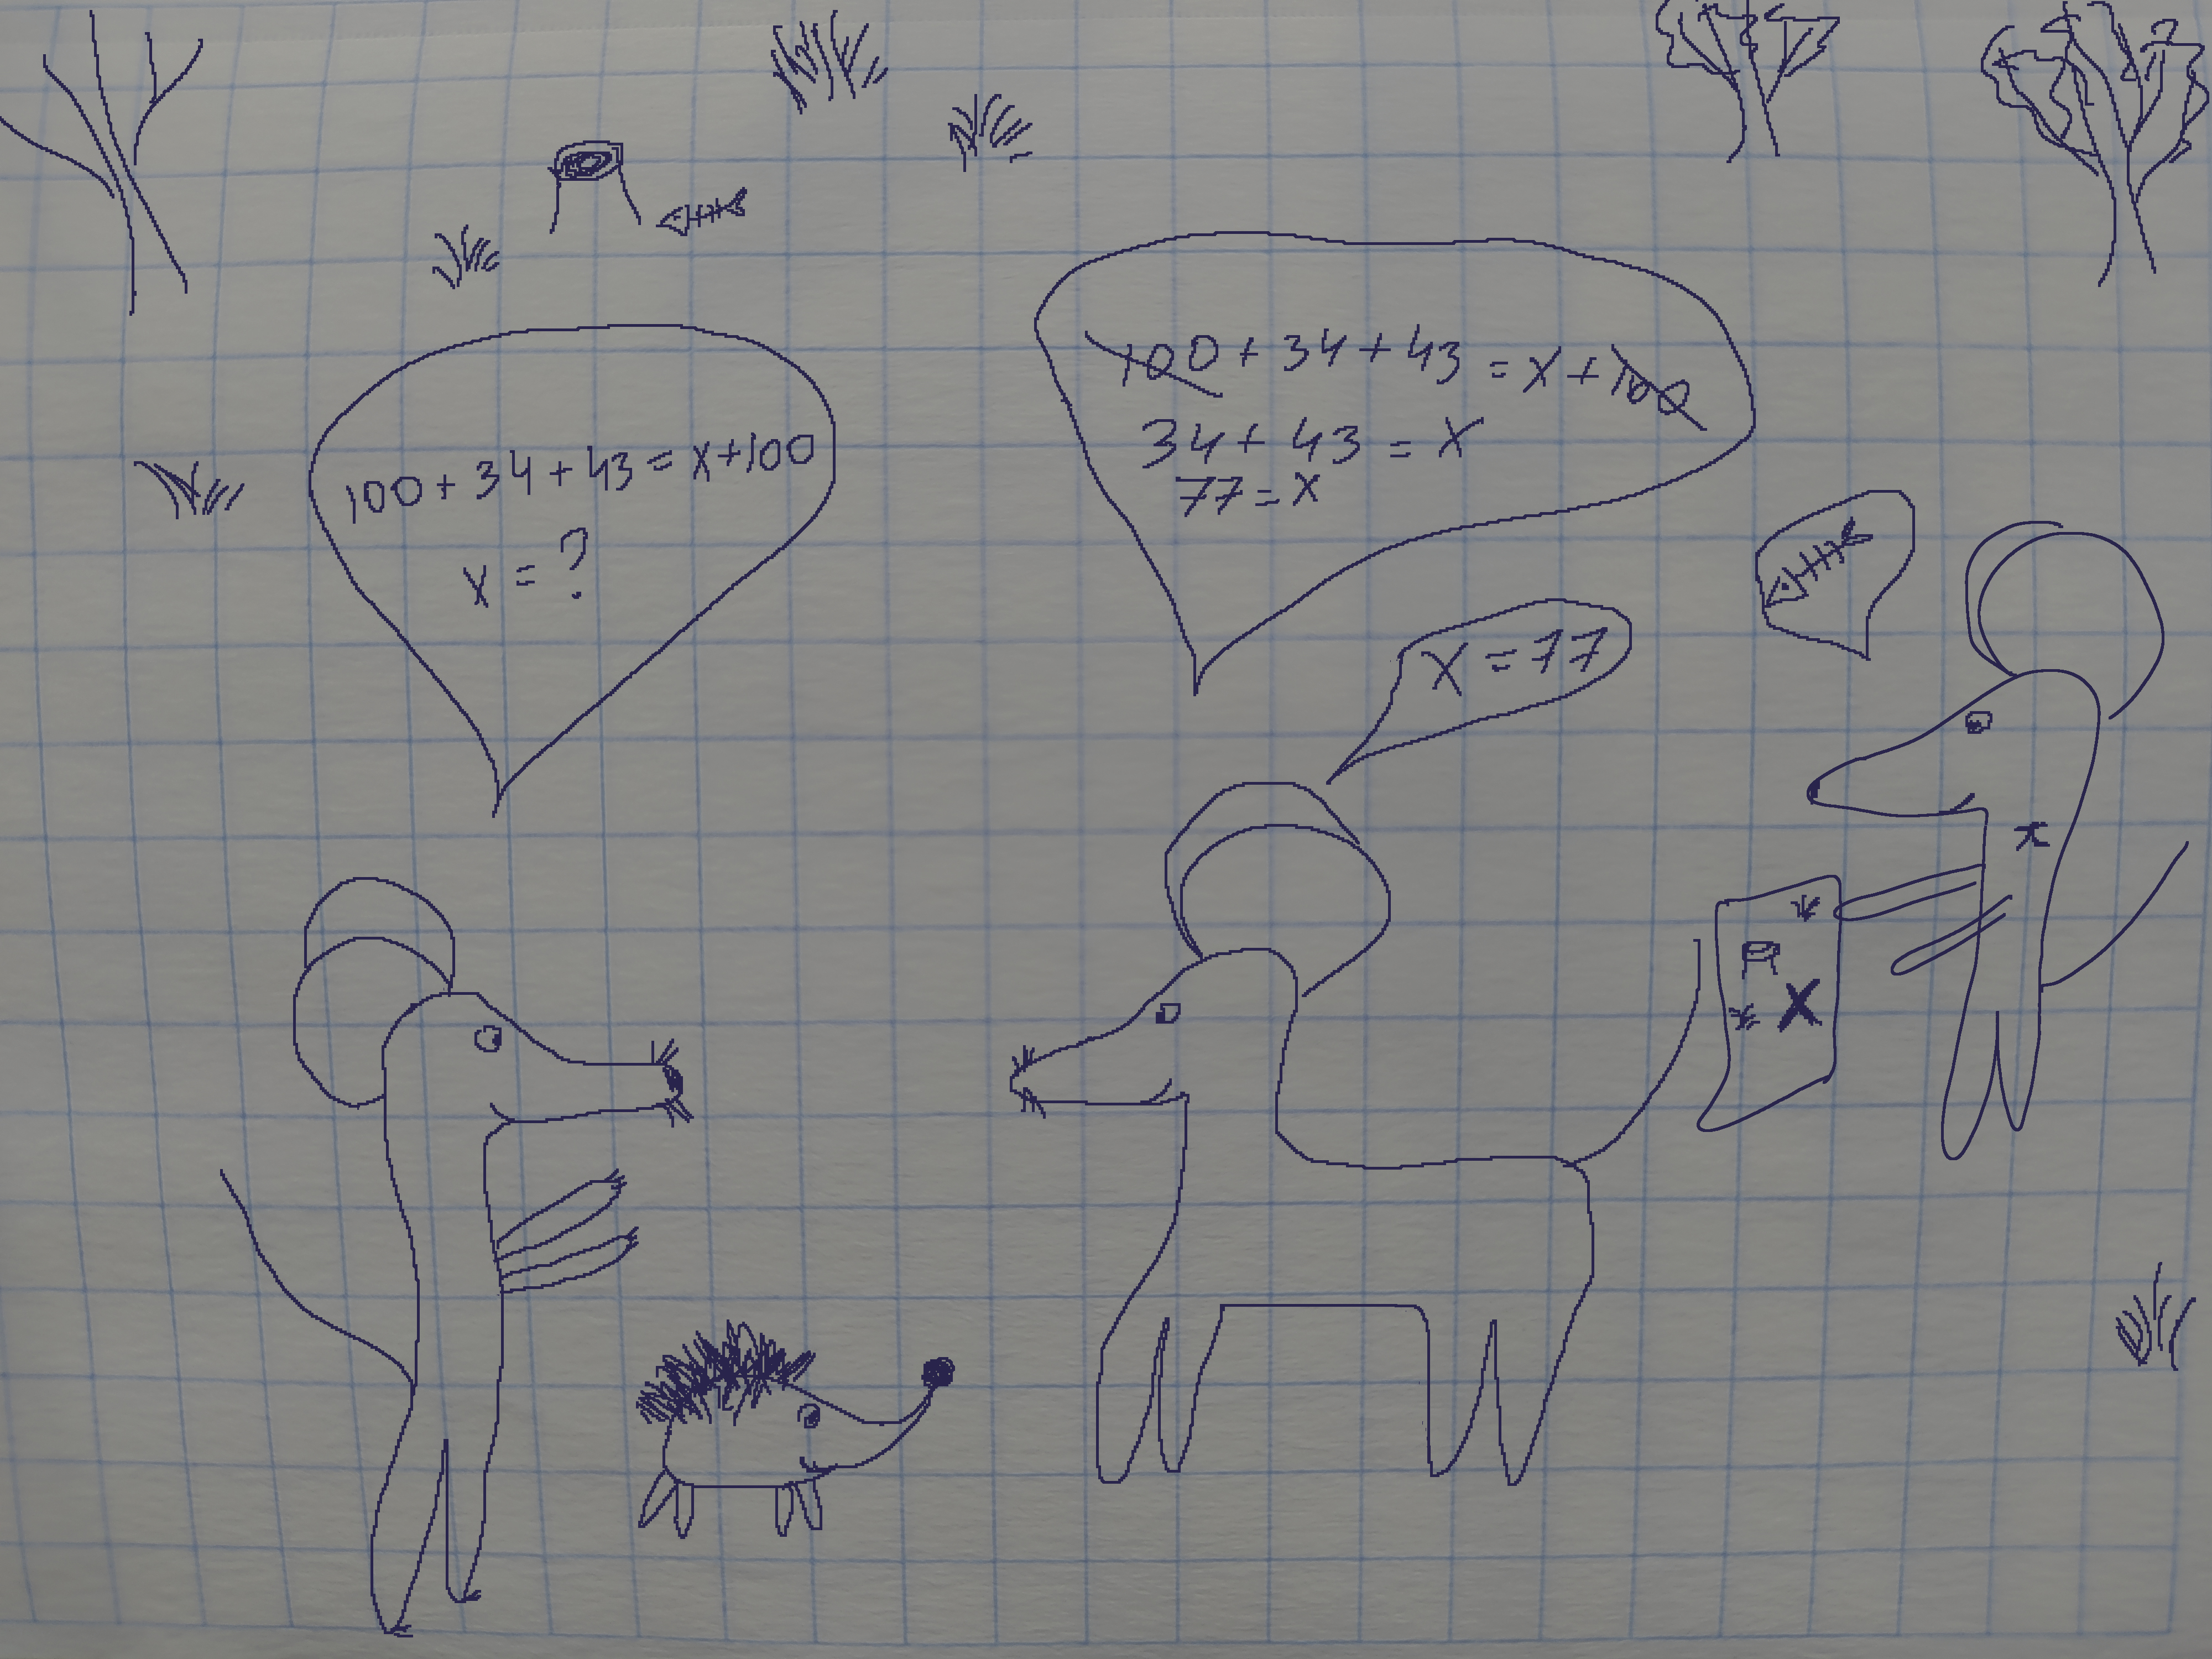 100 + 34 + 43 = x + 100
x = ?
100 + 34 + 43 = x + 100
34 + 43 = x
77 = x
x = 77
X